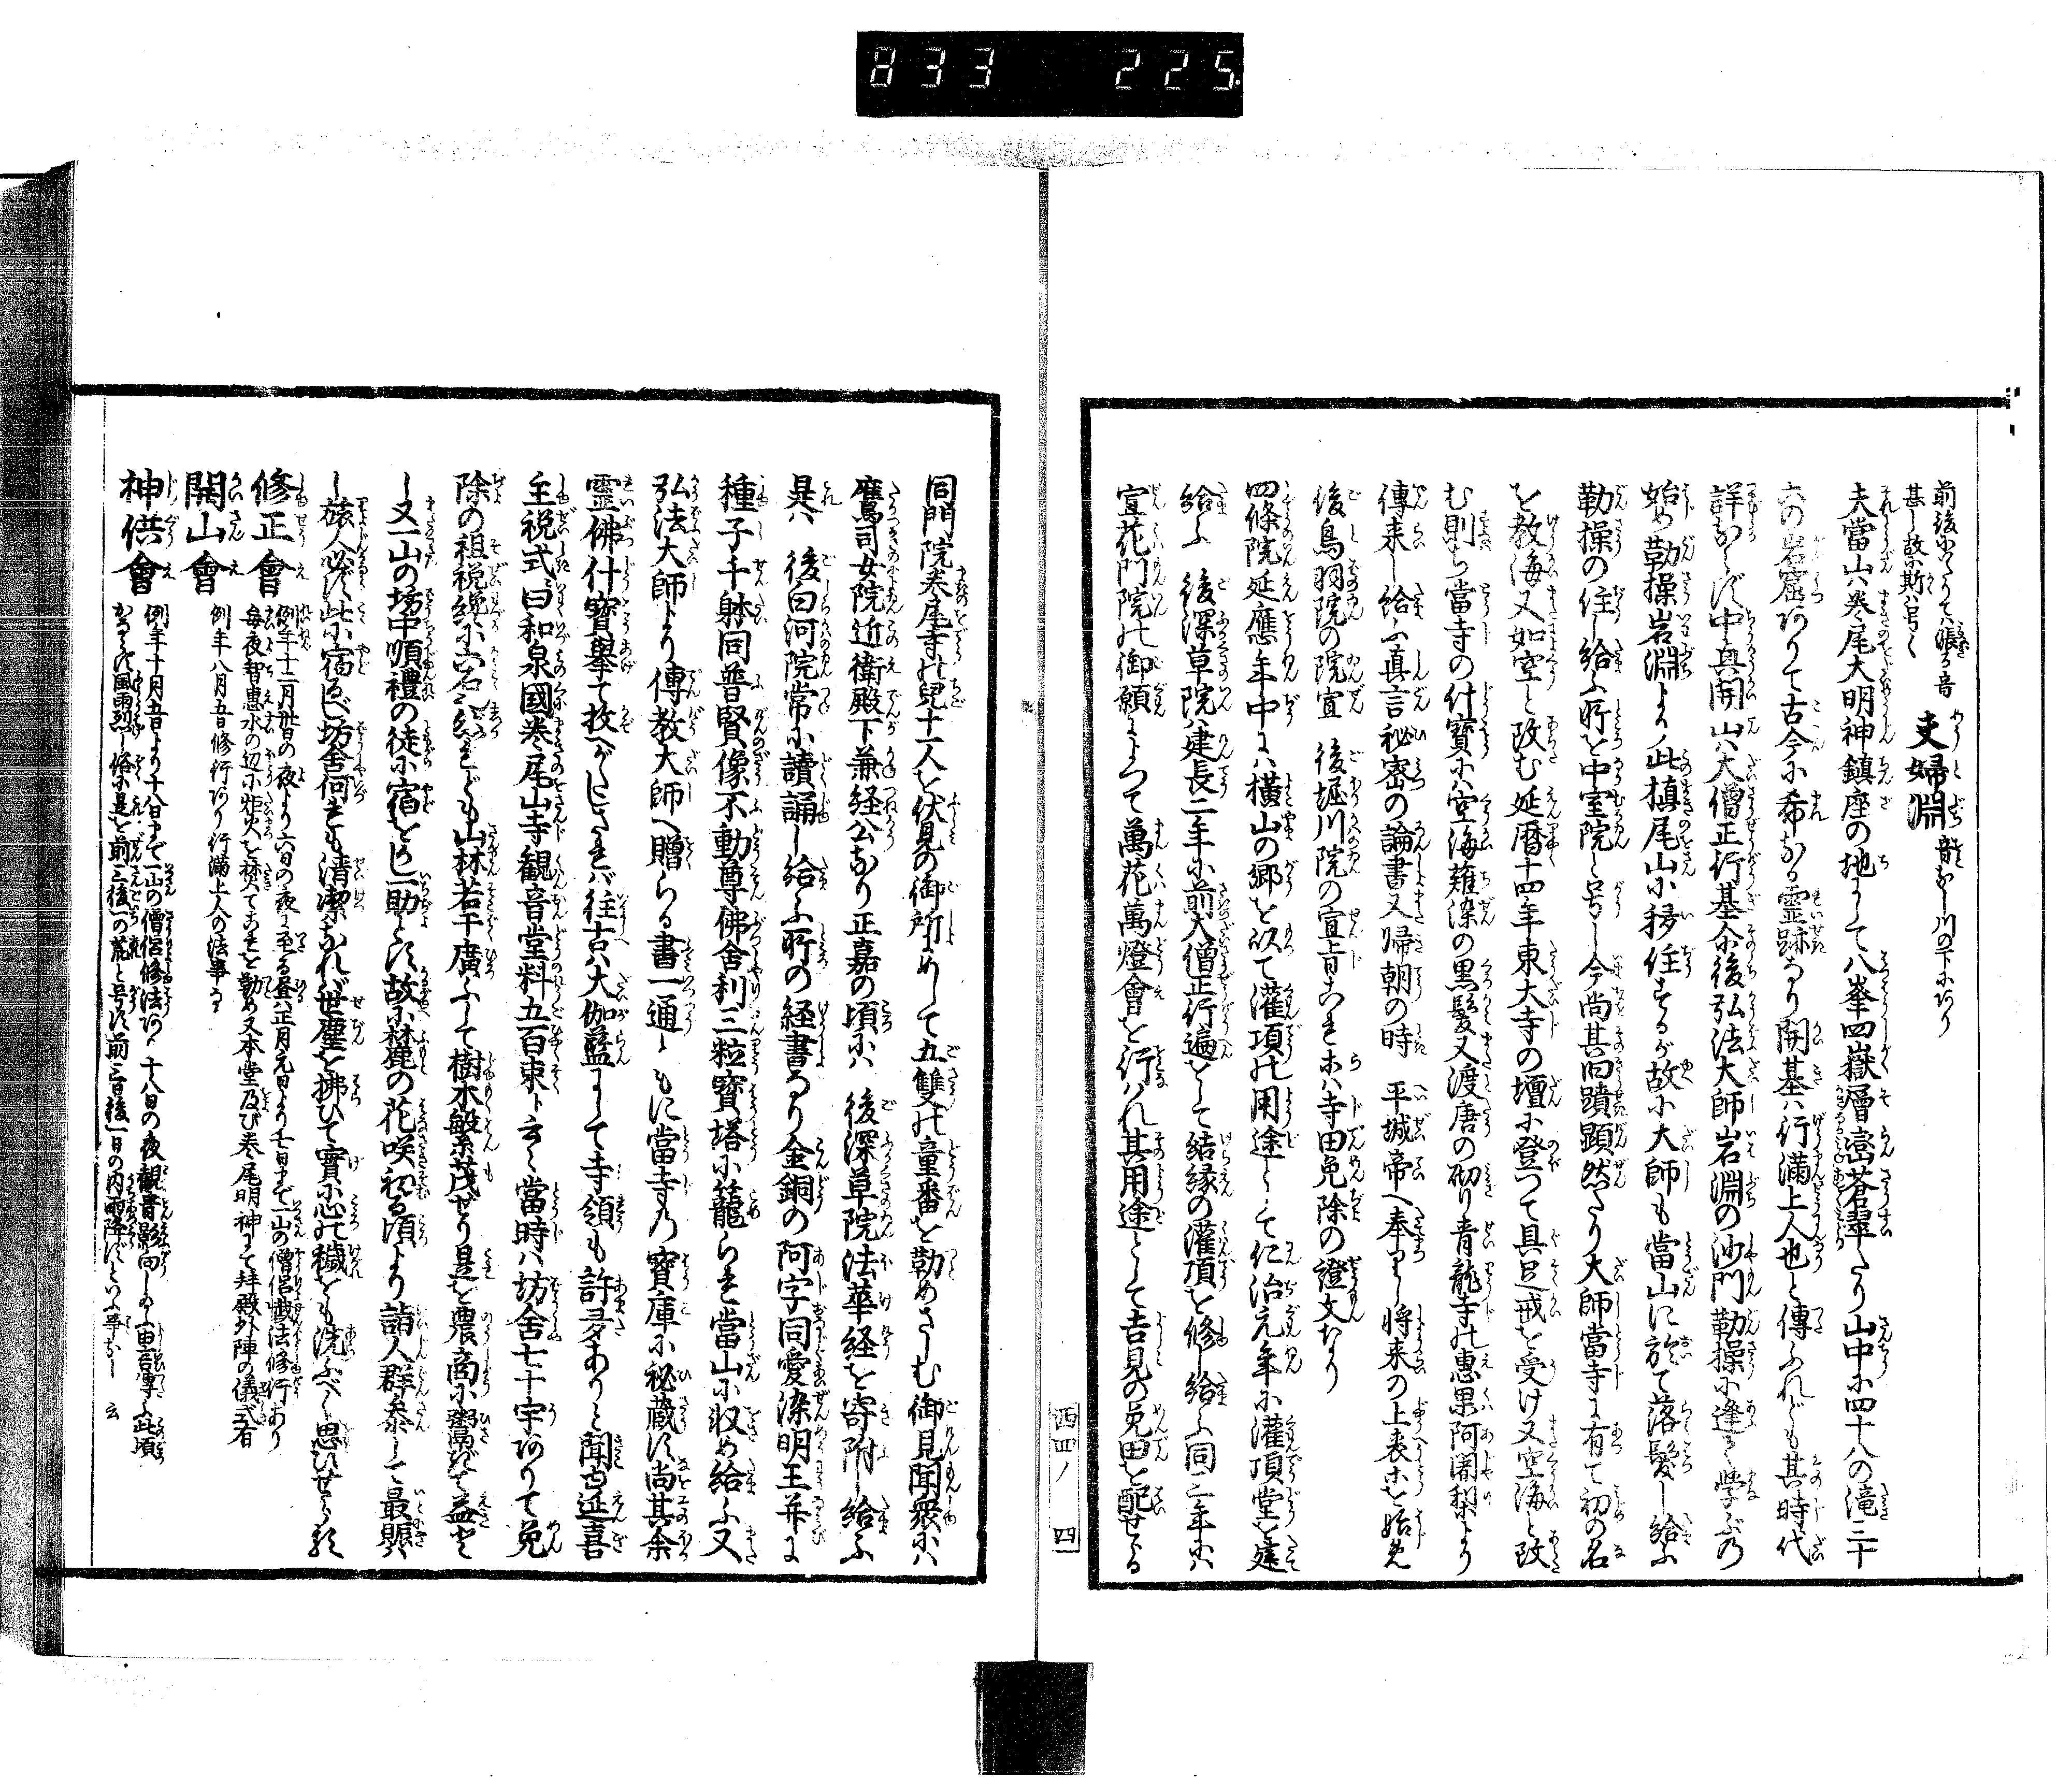 833 225
前後にありては漲る音
甚し故に斯は号く
夫婦淵
音なし川の下にあり
夫當山ハ巻尾大明神鎮座の地にして八峯四嶽層巒蒼翠たり山中に四十八の滝三十
六の岩窟ありて古今に希なる霊跡なり開基ハ行満上人也と傳ふれども其時代
詳ならず中興開山ハ大僧正行基余後弘法大師岩淵の沙門勤操に逢て学ぶの
始め勤操岩淵より此槙尾山に移住するが故に大師も當山に於て落髪し給ふ
勤操の住し給ふ所を中室院と号し今尚其旧蹟顕然たり大師當寺に有て初の名
を教海又如空と改む延暦十四年東大寺の壇に登つて具足戒を受け又空海と改
む則ち當寺の什寳に空海薙染の黒髪又渡唐の砌り青龍寺の惠果阿闍梨より
傳来し給ふ真言秘密の論書又帰朝の時 平城帝へ奉りし将来の上表等を始め
後鳥羽院の院宣 後堀川院の宣旨これ等ハ寺田免除の證文なり
四條院延應年中に横山の郷を以て灌頂の用途として仁治元年に灌頂堂を建
給ふ 後深草院ハ建長二年に前大僧正行遍をして結縁の灌頂を修し給ふ同二年にハ
宣花門院の御願によつて萬花萬燈會を行ハれ其用途として吉見の免田を配せらる
西四ノ 四
同門院巻尾寺の兒十一人を伏見の御所にめして五雙の童番を勤めさしむ御見聞衆にハ
鷹司女院近衛殿下兼経公なり正嘉の頃にハ 後深草院法華経を寄附し給ふ
是ハ 後白河院常に讀誦し給ふ所の経書なり金銅の阿字同愛染明王并に
種子千躰同普賢像不動尊佛舎利三粒寳塔に籠られ當山に収め給ふ又
弘法大師より傳教大師へ贈らる書一通ともに當寺の寳庫に秘蔵す尚其余
霊佛什寳挙て枚へがたしされバ往古ハ大伽藍にして寺領も許多ありと聞ゆ延喜
主税式ニ曰和泉國巻尾山寺観音堂料五百束ト云々當時ハ坊舎七十宇ありて免
除の祖税纔に六石余なれども山林若干廣ふして樹木繁茂せり是を農商に鬻ぎて益と
し又一山の坊中順禮の徒に宿をし一助とす故に麓の花咲初る頃より詣人群参して最賑ハ
し旅人必ず此に宿しバ坊舎何れも清潔なれバ世塵を拂ひて實に心の穢をも洗ふべく思ひせらる
修正會
例年十二月卅日の夜より六日の夜に至る昼ハ正月元日より七日まで一山の僧侶讖法修行あり
毎夜智惠水の辺に炬火を焼てこれを勤め又本堂及び巻尾明神にて拝殿外陣の儀式有
開山會
例年八月五日修行あり行満上人の法事なり
神供會
例年十月五日より十八日まで一山の僧侶修法あり 十八日の夜観音影向し給ふ由言傳ふ此頃
かならず風雨烈し俗に是を前三後一の荒と号す前三日後一日の内雨降ずといふ事なし 云